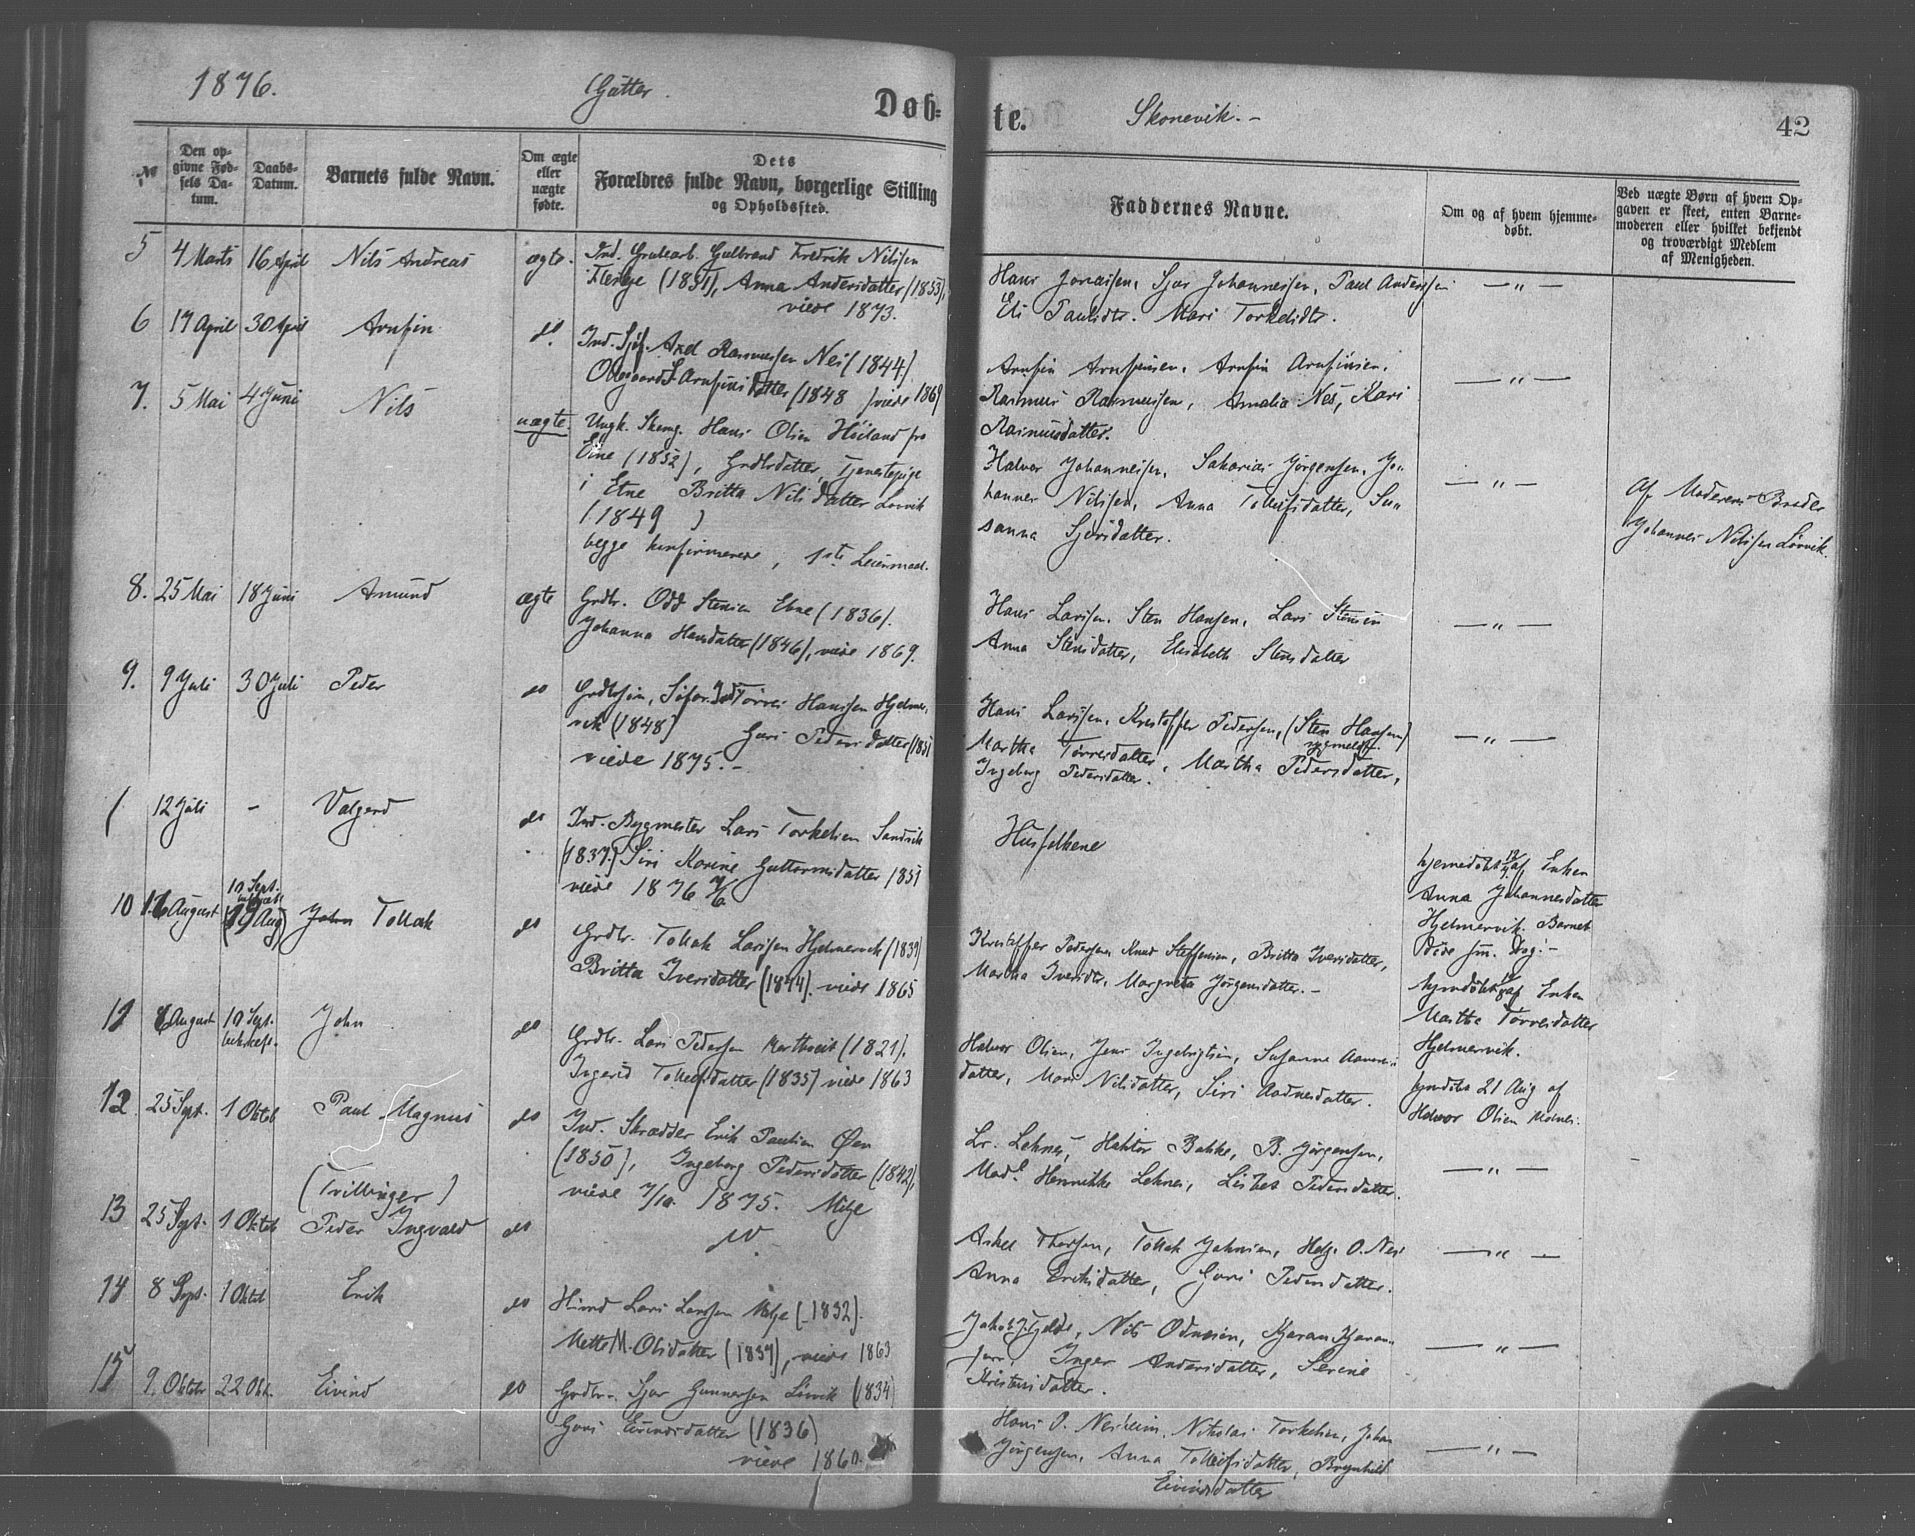 1876.
Gutter.
Døb=
te.
Skonevik. -
42
№
Den op-
givne Fød-
sels Da-
tum.
Daabs-
Datum.
Barnets fulde Navn.
Om ægte
eller
uægte
fødte.
Dets
Forældres fulde Navn, borgerlige Stilling
og Opholdssted.
Faddernes Navne.
Om og af hvem hjemme-
døbt.
Ved uægte Børn af hvem Op-
gaven er skeet, enten Barne-
moderen eller hvilket bekjendt
og troværdigt Medlem
af Menigheden.
5 4 Marts 16 April Nils Andreas ægte. Ind. Grubearb. Gulbrand Fredrik Nilsen
(1851), Anna Andersdatter (1853),
viede 1873.
Hans Jonassen, Sjur Johannessen, Paul Anderssen — " —
Eli Paulsdtr. Mari Torkelsdtr.
6 17 April 30 April Arnfin do. Ind. Axel Rasmussen Nes (1844)
Arnfinsdatter (1848 ) viede 1869
Arnfin Arnfinsen. Arnfin Arnfinsen. — " —
Rasmus Rasmussen, Amalia Nes, Kari
Rasmusdatter.
7. 5 Mai 4 Juni Nils uægte. Ungk. Hans Olsen Høiland fra
Etne (1852), Grdbrdatter, Tjenestepige
i Etne Britta Nilsdatter Løvvik
(1849 )
begge konfirmerede, 1ste Leiermaal.
Halvor Johannessen, Sakarias Jørgensen, Jo= — " —
hannes Nilssen, Anna Tolleifsdatter, Su=
sanna Sjursdatter.
Af Moderens Broder
Johannes Nilssen Løvvik.
8. 25 Mai 18 Juni Amund ægte Grdbr. Odd Stensen Ebne (1836).
Johanna Hansdatter (1846), viede 1869.
Hans Larssen. Sten Hansen, Lars Stensen — " —
Anna Stensdatter, Elisabeth Stensdatter
9. 9 Juli 30 Juli Peder do Grdbrsøn, Ind. Tørres Hanssen Hjelmer,
vik (1848) Guri Pedersdatter (1851
viede 1875. -
Hans Larssen, Kristoffer Pedersen, (Sten Hansen) — " —
Martha Tørresdatter, Martha Pedersdatter,
Ingeborg Pedersdatter.
12 Juli - Valgerd do Ind. Bygmester Lars Torkelsen Sandvik
(1837) Siri Karine Guttormsdatter 1851
viede 1876
Husfolkene
hjemedøbt af Enken
Anna Johannesdatter
Hjelmervik. Barnet
døde sm. Dag. -
10 16 August 10 Sept.
(19 Aug) John Tollak do Grdbr. Tollak Larssen Hjelmervik (1839)
Britta Iversdatter (1844). viede 1865
Kristoffer Pedersen, Knud Steffensen, Britta Iversdatter,
Martha Iversdtr, Margreta Jørgensdatter. -
hjemdøbt af Enken
Martha Tørresdatter
Hjelmervik.
11 August 10 Sept.
bekræft. John do Grdbr. Lars Pedersen (1821).
Ingerid Tolleifsdatter (1835) viede 1863
Halvor Olsen, Jens Ingebrigtsen, Susanna
datter, Mari Nilsdatter, Siri Aadnesdatter.
hjemdøbt 21 Aug af
Halvor Olsen
12 25 Sept. 1 Oktob Paul Magnus do Ind. Skrædder Erik Paulsen Øen
(1850), Ingeborg Pedersdatter (1842),
viede 7/10. 1875. Milje
Lr. Leknes, Hektor Bakke, B. Jørgensen, — " —
Mad. Henrikke Leknes, Lisbet Pedersdatter.
(Tvillinger)
13 25 Sept. 1 Oktob Peder Ingvald do do
Askel Thorsen, Tollak Johnsen, Helge O. Nes — " —
Anna Eriksdatter, Guri Pedersdatter.
14 8 Sept. 1 Oktob Erik do Lars Larssen Milje (1832).
Mette M. Olsdatter (1837), viede 1863
Jakob Fjelde, Nils Odnesen, — " —
Inger Andersdatter, Serine
Kristensdatter.
15 9. Oktobr 22 Okt. Eivind do Grdbr. Sjur Gunnarsen Løvvik (1834)
Guri Eivindsdatter (1836)
viede 1860.
Hans O. Nesheim, Nikolai Torkelsen, Johan — " —
Jørgensen, Anna Tolleifsdatter, Brynhild
Eivindsdatter